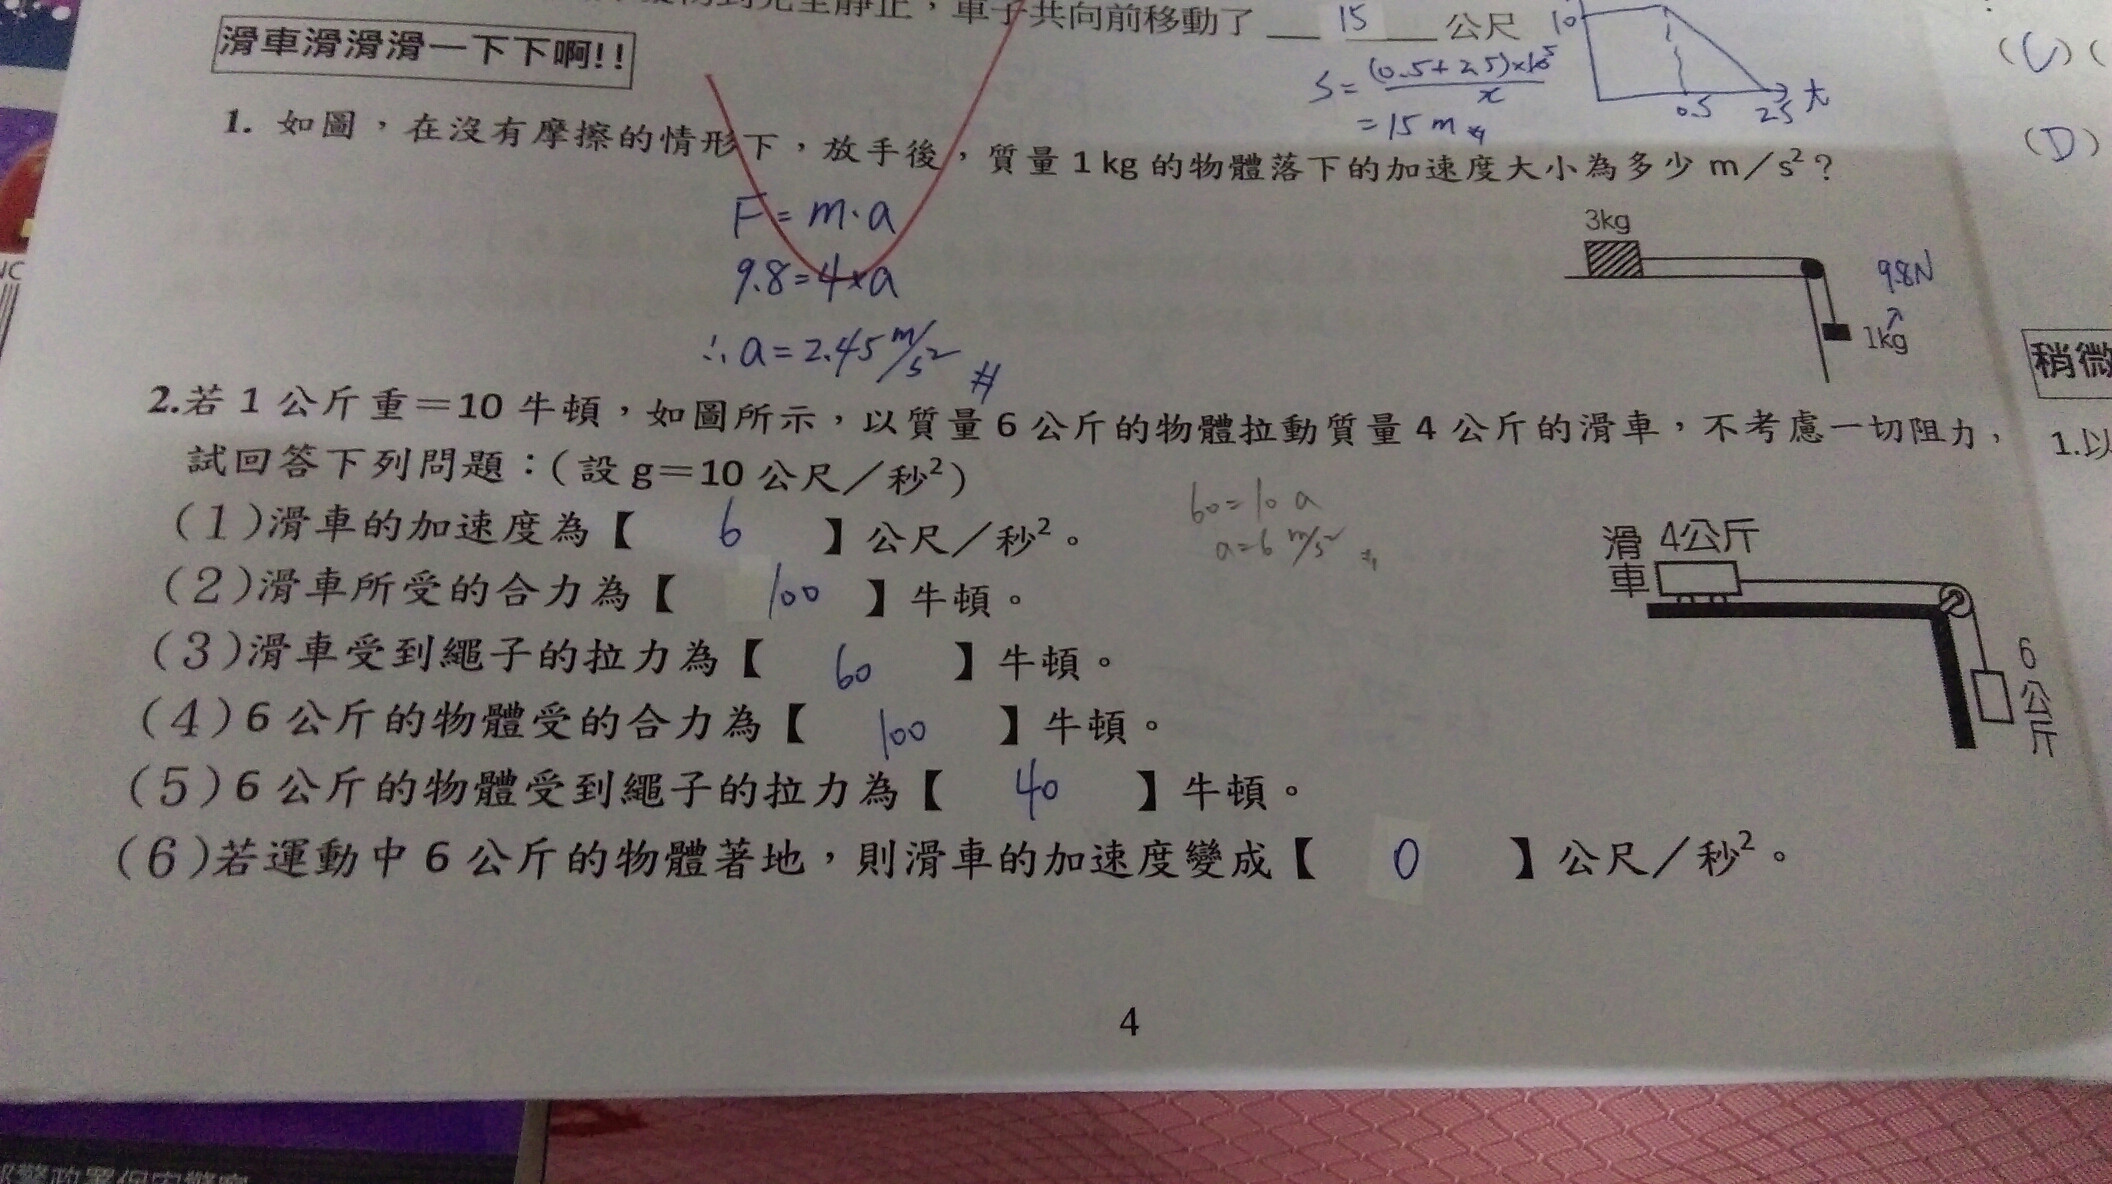 到完全靜止，車子共向前移動了 15 公尺
10
S = (0.5+2.5)×10 / 2
= 15 m #
0.5 2.5 t
(C) (
(D)
滑車滑滑滑一下下啊!!
1. 如圖，在沒有摩擦的情形下，放手後，質量 1 kg 的物體落下的加速度大小為多少 m／s²？
F = m·a
9.8 = 4×a
∴ a = 2.45 m/s² #
3kg
9.8N
1kg
稍微
2.若 1 公斤重＝10 牛頓，如圖所示，以質量 6 公斤的物體拉動質量 4 公斤的滑車，不考慮一切阻力，
1.以
試回答下列問題：(設 g＝10 公尺／秒²)
60 = 10 a
a = 6 m/s² #
(1)滑車的加速度為【 6 】公尺／秒²。
(2)滑車所受的合力為【 100 】牛頓。
(3)滑車受到繩子的拉力為【 60 】牛頓。
(4)6 公斤的物體受的合力為【 100 】牛頓。
(5)6 公斤的物體受到繩子的拉力為【 40 】牛頓。
(6)若運動中 6 公斤的物體著地，則滑車的加速度變成【 0 】公尺／秒²。
滑車 4公斤
6公斤
4